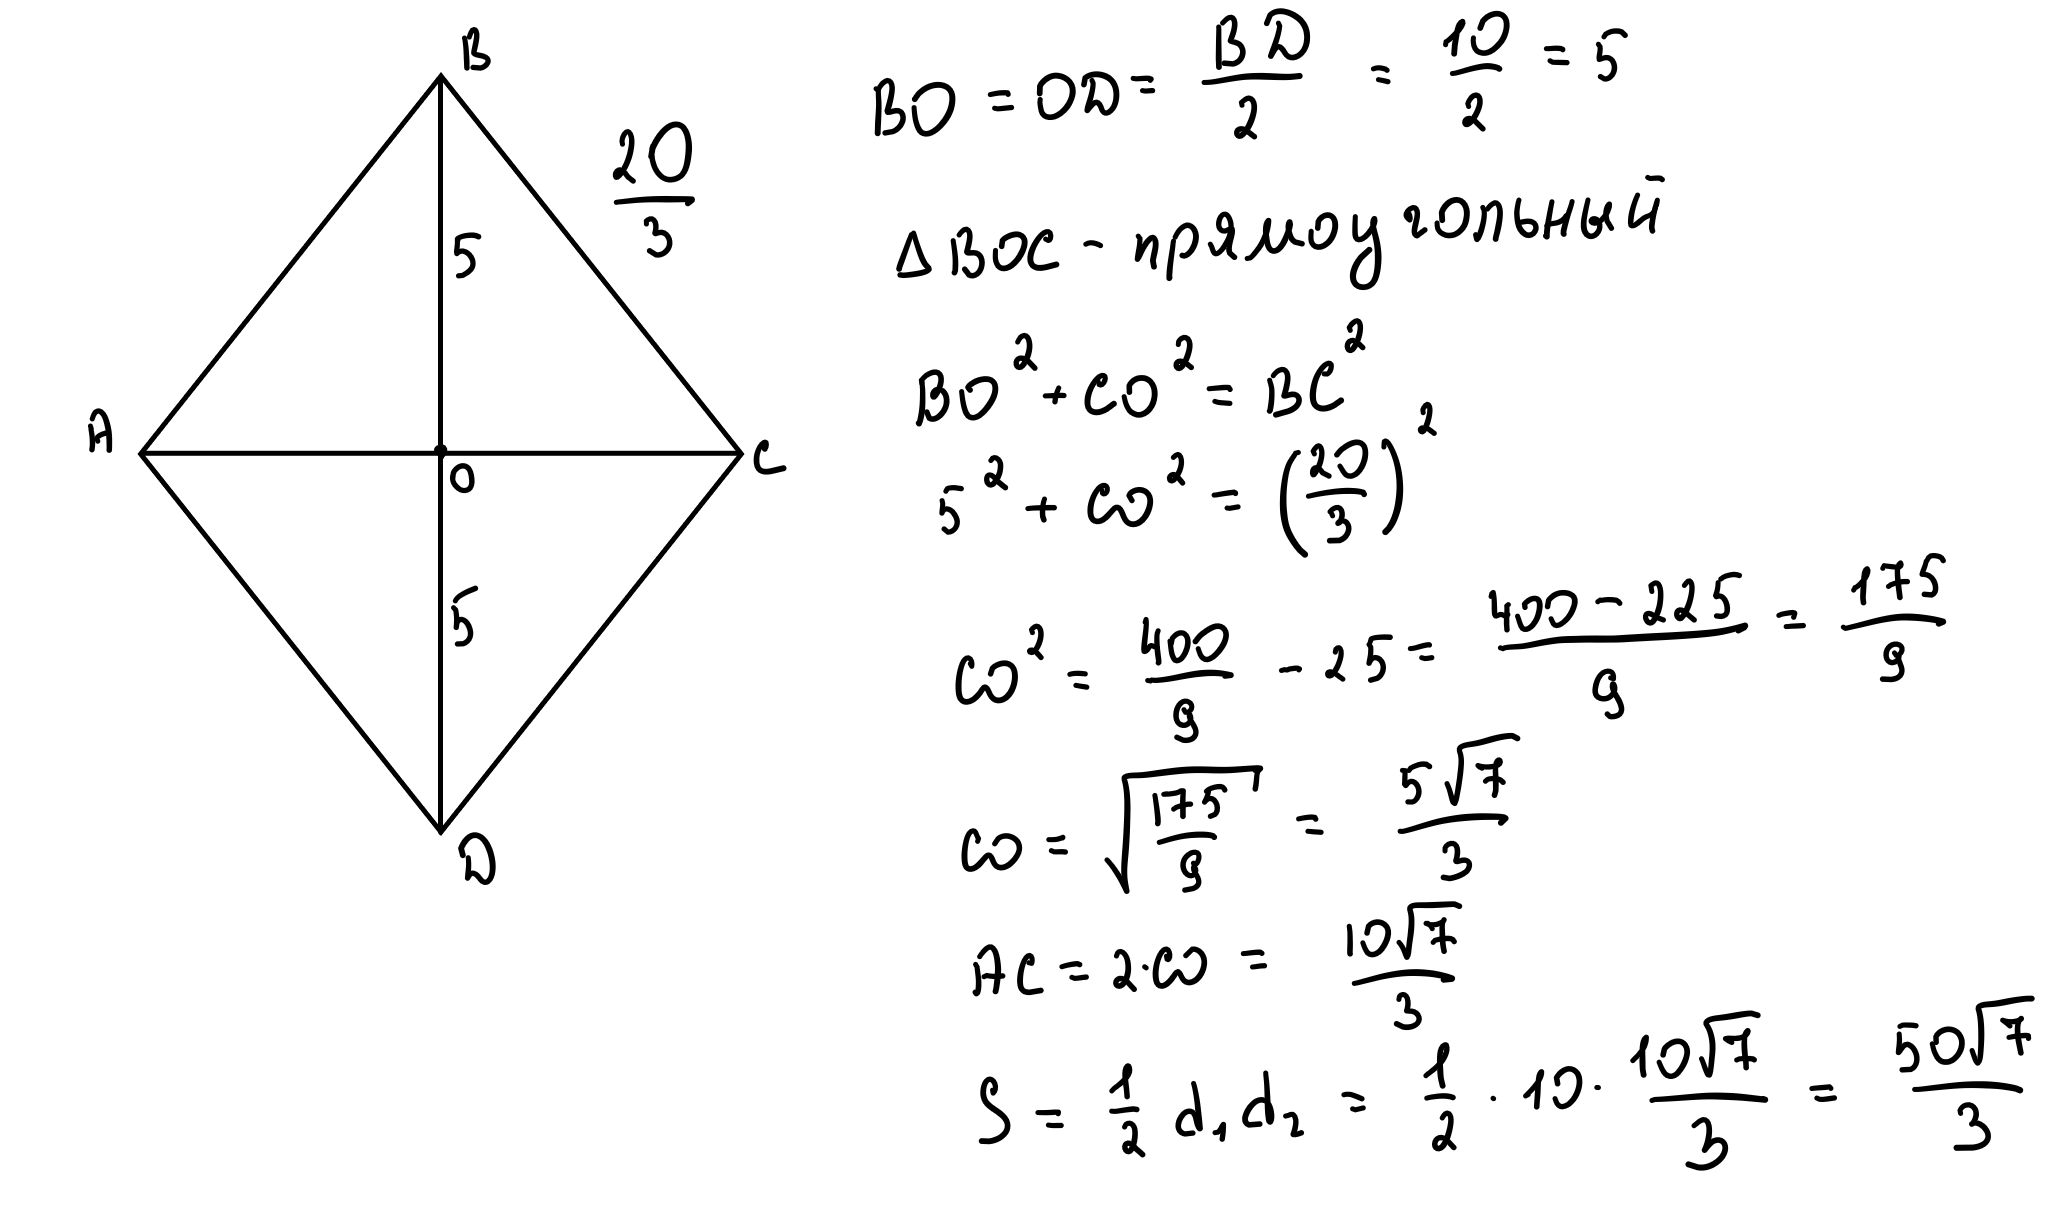 B
20/3
5
A
O
C
5
D
BO = OD = BD/2 = 10/2 = 5
Δ BOC - прямоугольный
BO² + CO² = BC²
5² + CO² = (20/3)²
CO² = 400/9 - 25 = (400 - 225)/9 = 175/9
CO = √(175/9) = 5√7/3
AC = 2·CO = 10√7/3
S = 1/2 d₁d₂ = 1/2 · 10 · 10√7/3 = 50√7/3